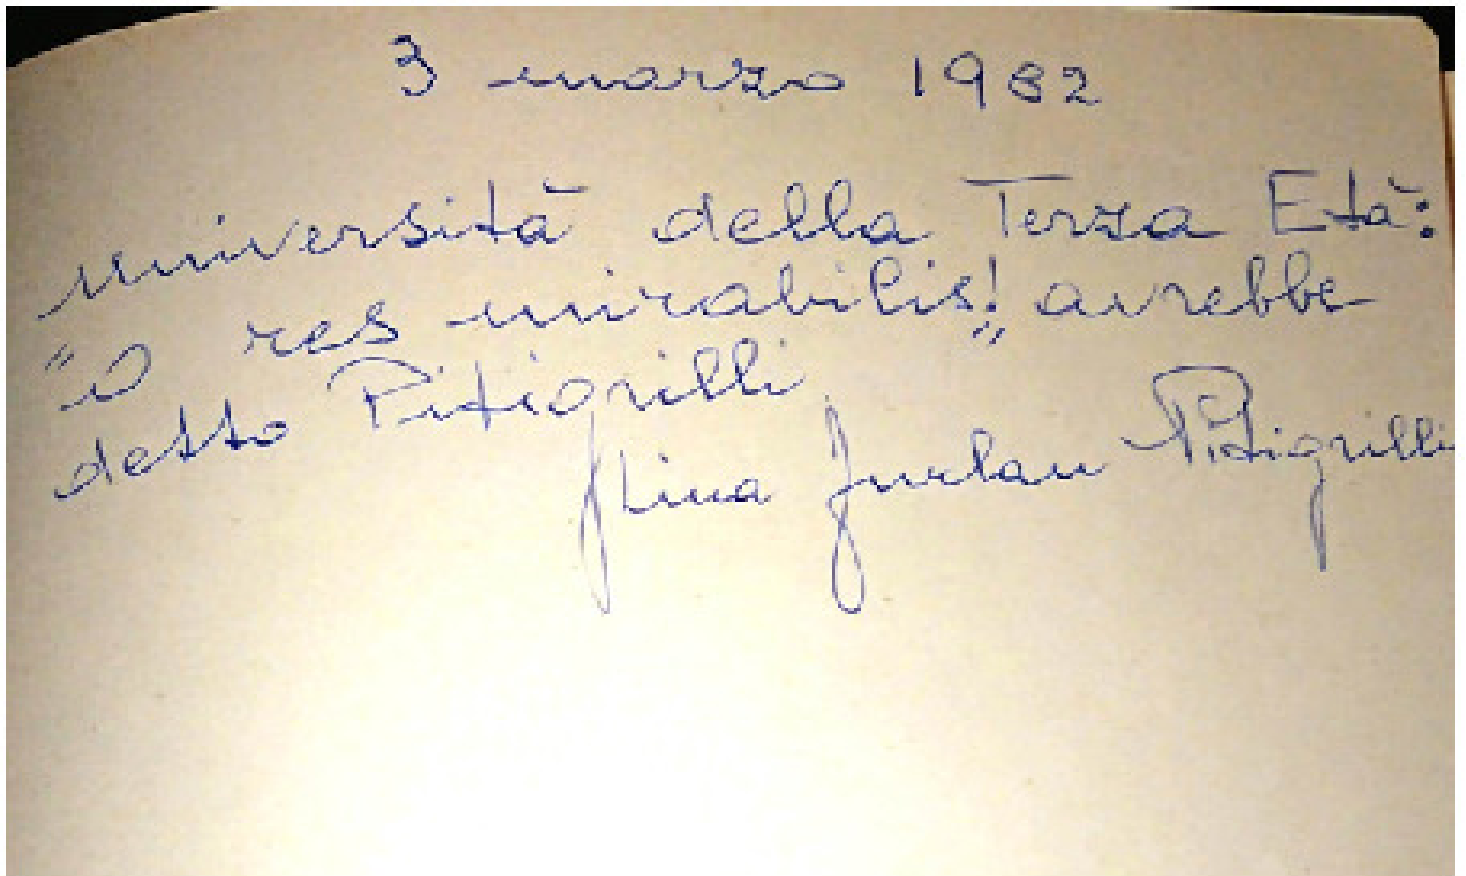 3 marzo 1982
Università della Terza Età:
"O res mirabilis!" avrebbe
detto Pitigrilli
Lina Furlan Pitigrilli